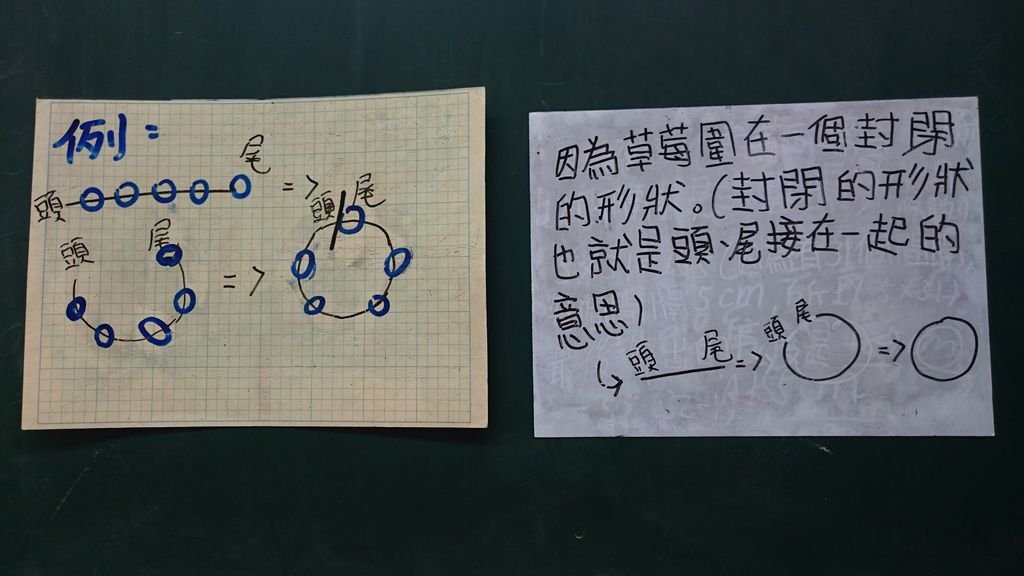 例：
頭 尾 =>
頭 尾 => 頭 尾
因為草莓圍在一個封閉
的形狀。(封閉的形狀
也就是頭、尾接在一起的
意思)
頭 尾 => 頭 尾 =>